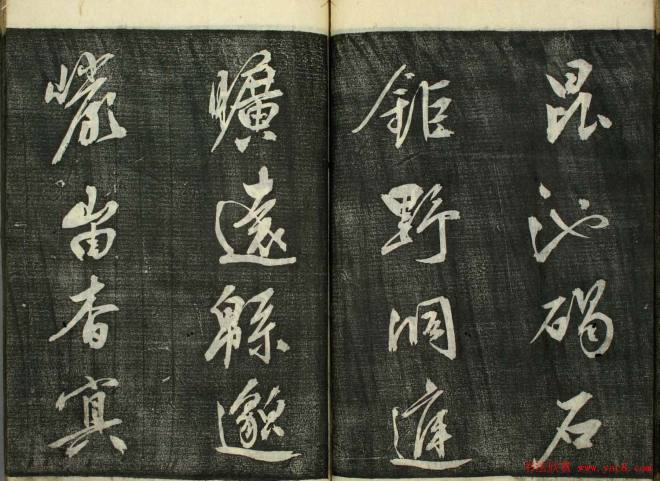 昆池碣石
鉅野洞庭
曠遠緜邈
巖峀杳冥
书法欣赏 www.yac8.com